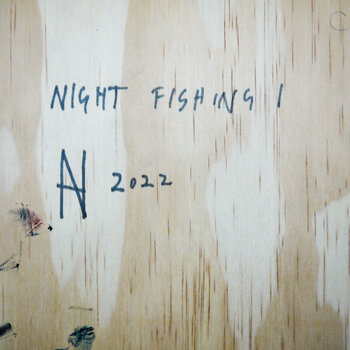 NIGHT FISHING 1
AN 2022